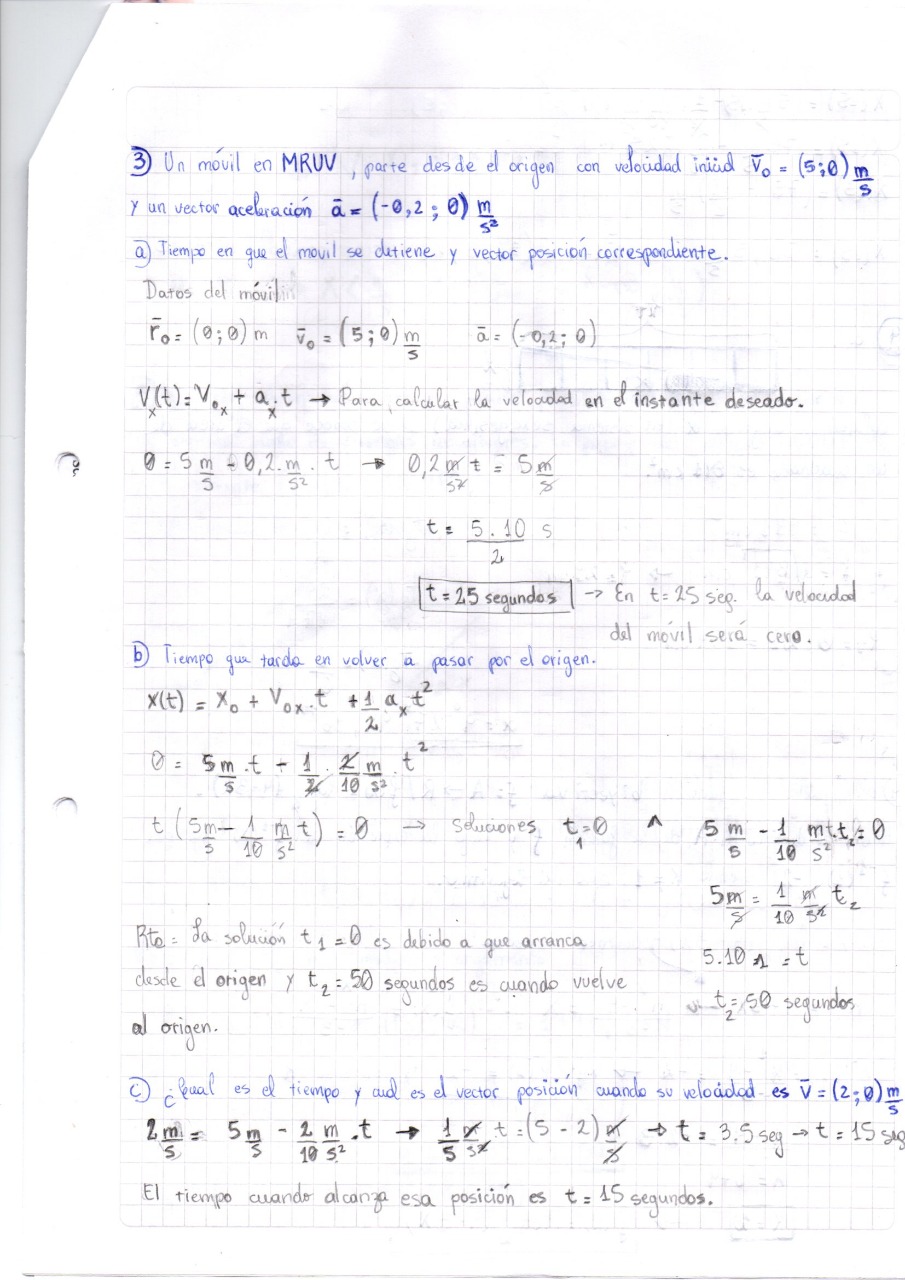 3) Un móvil en MRUV, parte desde el origen con velocidad inicial v̄₀ = (5;0) m/s
y un vector aceleración ā = (-0,2 ; 0) m/s²
a) Tiempo en que el movil se detiene y vector posición correspondiente.
Datos del móvil
r̄₀ = (0;0) m v̄₀ = (5;0) m/s ā = (-0,2; 0)
Vₓ(t) = V₀ₓ + aₓ.t → Para calcular la velocidad en el instante deseado.
0 = 5 m/s - 0,2. m/s² . t → 0,2 m/s² t = 5 m/s
t = 5.10/2 s
t = 25 segundos → En t = 25 seg. la velocidad
del móvil será cero.
b) Tiempo que tarda en volver a pasar por el origen.
X(t) = X₀ + V₀ₓ.t + 1/2 aₓ t²
0 = 5 m/s .t - 1/2 . 2/10 m/s² . t²
t (5 m/s - 1/10 m/s² t) = 0 → Soluciones t₁=0 ∧ 5 m/s - 1/10 m/s² . t₂ = 0
5 m/s = 1/10 m/s² t₂
Rta = La solución t₁ = 0 es debido a que arranca
5.10 s = t
desde el origen y t₂ = 50 segundos es cuando vuelve
t₂ = 50 segundos
al origen.
c) ¿Cual es el tiempo y cual es el vector posición cuando su velocidad es v̄ = (2;0) m/s
2 m/s = 5 m/s - 2/10 m/s² .t → 1/5 m/s² t = (5 - 2) m/s → t = 3.5 seg → t = 15 seg
El tiempo cuando alcanza esa posición es t = 15 segundos.